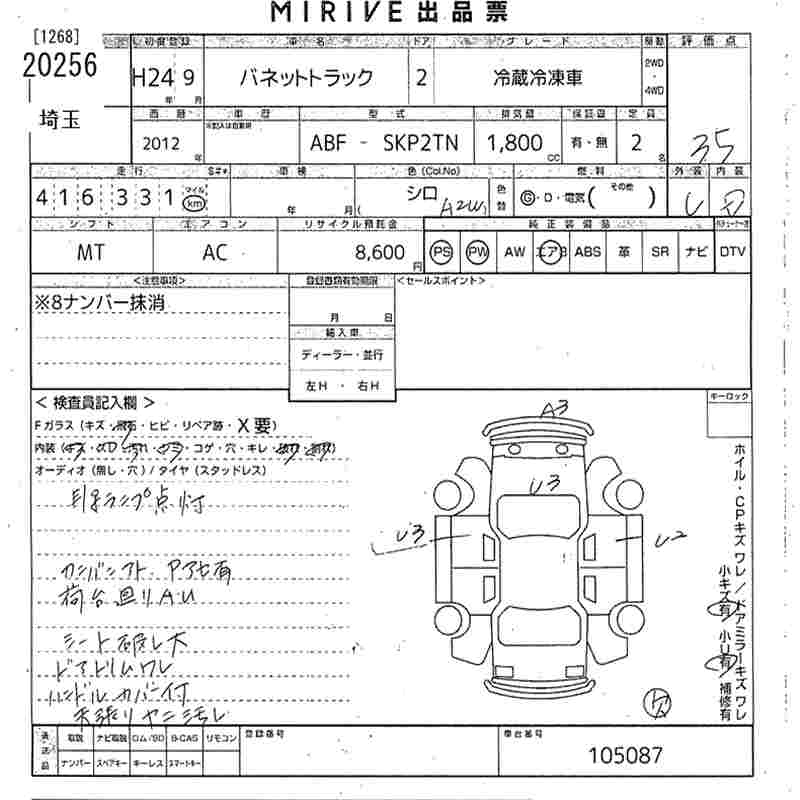 MIRIVE 出品票
[1268]
20256
埼玉
初度登録 車名 ドア グレード 駆動 評価点
H24 9 バネットトラック 2 冷蔵冷凍車 2WD・4WD
年 月
西暦 車歴 型式 排気量 保証書 定員
2012 年 ABF - SKP2TN 1,800 cc 有・無 2 名 35
走行 車検 色(Col.No) 燃料 その他 外装 内装
416,331 マイル km 年 月( シロ A2W) 色替 G・D・電気( ) U D
シフト エアコン リサイクル預託金 純正装備品
MT AC 8,600円 PS PW AW エアB ABS 革 SR ナビ DTV
<注意事項> 登録書類有効期限 <セールスポイント>
※8ナンバー抹消
月 日
輸入車
ディーラー・並行
左H ・ 右H
< 検査員記入欄 > キーロック
Fガラス (キズ・飛石・ヒビ・リペア跡・X要)
内装 (キズ・スレ・汚れ・シミ・コゲ・穴・キレ・
オーディオ (無し・穴) / タイヤ (スタッドレス)
ランプ点灯
カンバンフト・Pアセ有
荷台廻りAU
シート破レ大
ドアトリムワレ
ハンドルカバー付
天張りヤニ汚レ
A3
U3
U3
U2
欠
ホイル・CPキズ ワレ / ドアミラーキズ ワレ
小キズ有 小U有 補修有
後送品 取説 ナビ取説 ロム/SD B-CAS リモコン 登録番号 車台番号
ナンバー スペアキー キーレス スマートキー 105087